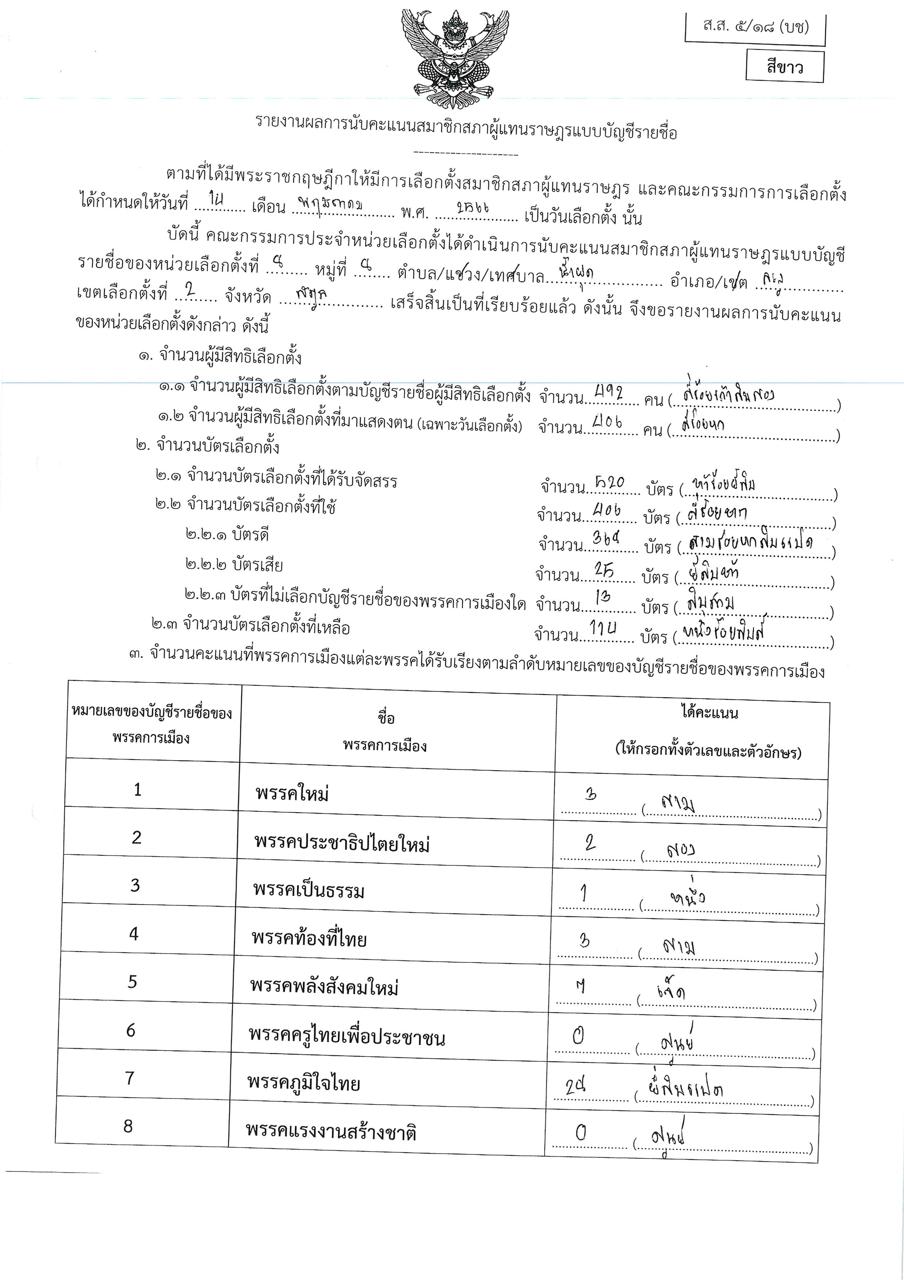 ส.ส. ๕/๑๘ (บช)
สีขาว
รายงานผลการนับคะแนนสมาชิกสภาผู้แทนราษฎรแบบบัญชีรายชื่อ
ตามที่ได้มีพระราชกฤษฎีกาให้มีการเลือกตั้งสมาชิกสภาผู้แทนราษฎร และคณะกรรมการการเลือกตั้ง
ได้กำหนดให้วันที่ 14 เดือน พฤษภาคม พ.ศ. 2566 เป็นวันเลือกตั้ง นั้น
บัดนี้ คณะกรรมการประจำหน่วยเลือกตั้งได้ดำเนินการนับคะแนนสมาชิกสภาผู้แทนราษฎรแบบบัญชี
รายชื่อของหน่วยเลือกตั้งที่ 8 หมู่ที่ 8 ตำบล/แขวง/เทศบาล น้ำผุด อำเภอ/เขต ละงู
เขตเลือกตั้งที่ 2 จังหวัด สตูล เสร็จสิ้นเป็นที่เรียบร้อยแล้ว ดังนั้น จึงขอรายงานผลการนับคะแนน
ของหน่วยเลือกตั้งดังกล่าว ดังนี้
๑. จำนวนผู้มีสิทธิเลือกตั้ง
๑.๑ จำนวนผู้มีสิทธิเลือกตั้งตามบัญชีรายชื่อผู้มีสิทธิเลือกตั้ง จำนวน 492 คน (สี่ร้อยเก้าสิบสอง)
๑.๒ จำนวนผู้มีสิทธิเลือกตั้งที่มาแสดงตน (เฉพาะวันเลือกตั้ง) จำนวน 406 คน (สี่ร้อยหก)
๒. จำนวนบัตรเลือกตั้ง
๒.๑ จำนวนบัตรเลือกตั้งที่ได้รับจัดสรร จำนวน 520 บัตร (ห้าร้อยยี่สิบ)
๒.๒ จำนวนบัตรเลือกตั้งที่ใช้ จำนวน 406 บัตร (สี่ร้อยหก)
๒.๒.๑ บัตรดี จำนวน 368 บัตร (สามร้อยหกสิบแปด)
๒.๒.๒ บัตรเสีย จำนวน 25 บัตร (ยี่สิบห้า)
๒.๒.๓ บัตรที่ไม่เลือกบัญชีรายชื่อของพรรคการเมืองใด จำนวน 13 บัตร (สิบสาม)
๒.๓ จำนวนบัตรเลือกตั้งที่เหลือ จำนวน 114 บัตร (หนึ่งร้อยสิบสี่)
๓. จำนวนคะแนนที่พรรคการเมืองแต่ละพรรคได้รับเรียงตามลำดับหมายเลขของบัญชีรายชื่อของพรรคการเมือง
หมายเลขของบัญชีรายชื่อของ ชื่อ ได้คะแนน
พรรคการเมือง พรรคการเมือง (ให้กรอกทั้งตัวเลขและตัวอักษร)
1 พรรคใหม่ 3 (สาม)
2 พรรคประชาธิปไตยใหม่ 2 (สอง)
3 พรรคเป็นธรรม 1 (หนึ่ง)
4 พรรคท้องที่ไทย 3 (สาม)
5 พรรคพลังสังคมใหม่ 7 (เจ็ด)
6 พรรคครูไทยเพื่อประชาชน 0 (ศูนย์)
7 พรรคภูมิใจไทย 28 (ยี่สิบแปด)
8 พรรคแรงงานสร้างชาติ 0 (ศูนย์)